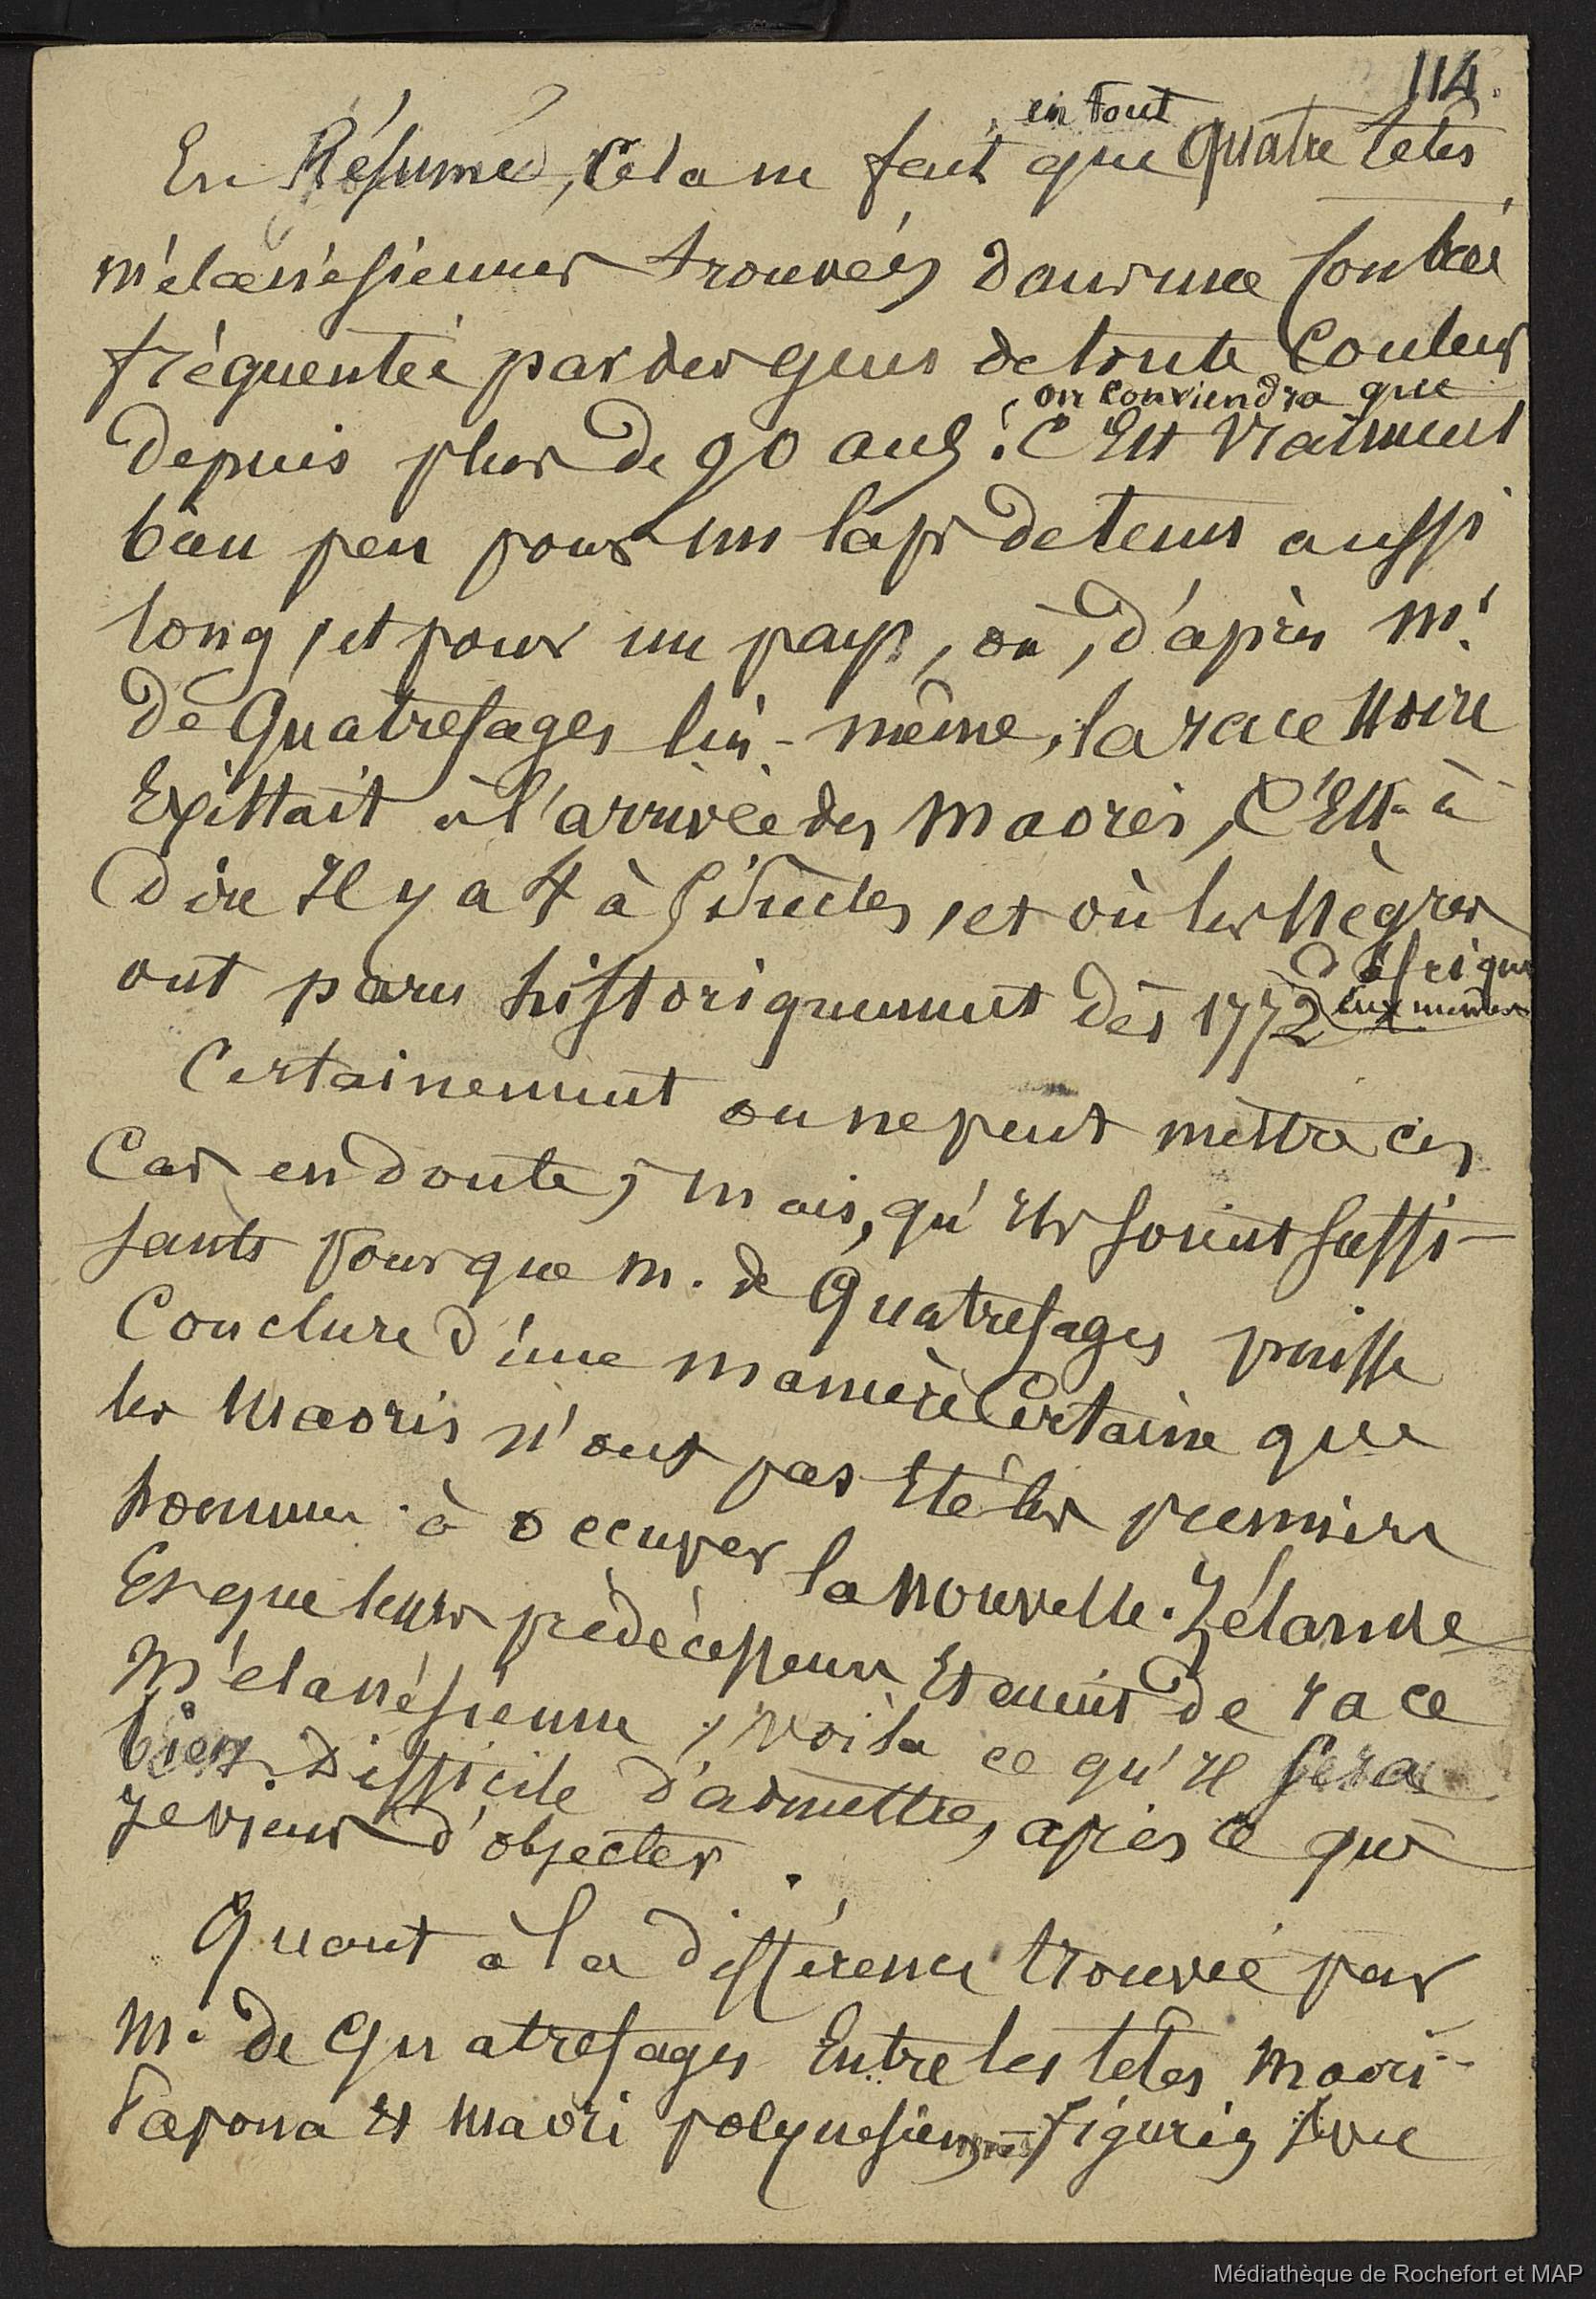 114.
en tout
En Résumé, Cela ne fait que quatre têtes
mélanésiennes trouvées dans une contrée
fréquentée par des gens de toute Couleur
, on conviendra que
depuis plus de 90 ans : C'Est vraiment
bien peu pour un laps de tems aussi
long, et pour un pays, où, d'après Mr.
De Quatrefages lui-même, la race noire
Existait à l'arrivée des Maoris, C'Est-à-
Dire Il y a 4 à 5 siècles, et où les Nègres
d'Afrique
ont paru historiquement dès 1772 eux mêmes
Certainement on ne peut mettre ces
Cas en doute ; mais, qu'Ils soient suffi-
sants pour que M. de Quatrefages puisse
Conclure d'une manière Certaine que
les Maoris n'ont pas Eté les premiers
hommes à occuper la Nouvelle-Zélande
Et que leurs prédécesseurs Etaient de race
Mélanésienne, voilà ce qu'Il sera
bien difficile d'admettre, après ce que
Je viens d'objecter.
Quant à la différence trouvée par
M. de Quatrefages Entre les têtes Maori-
Papoua Et Maori polynésiennes figurées sur